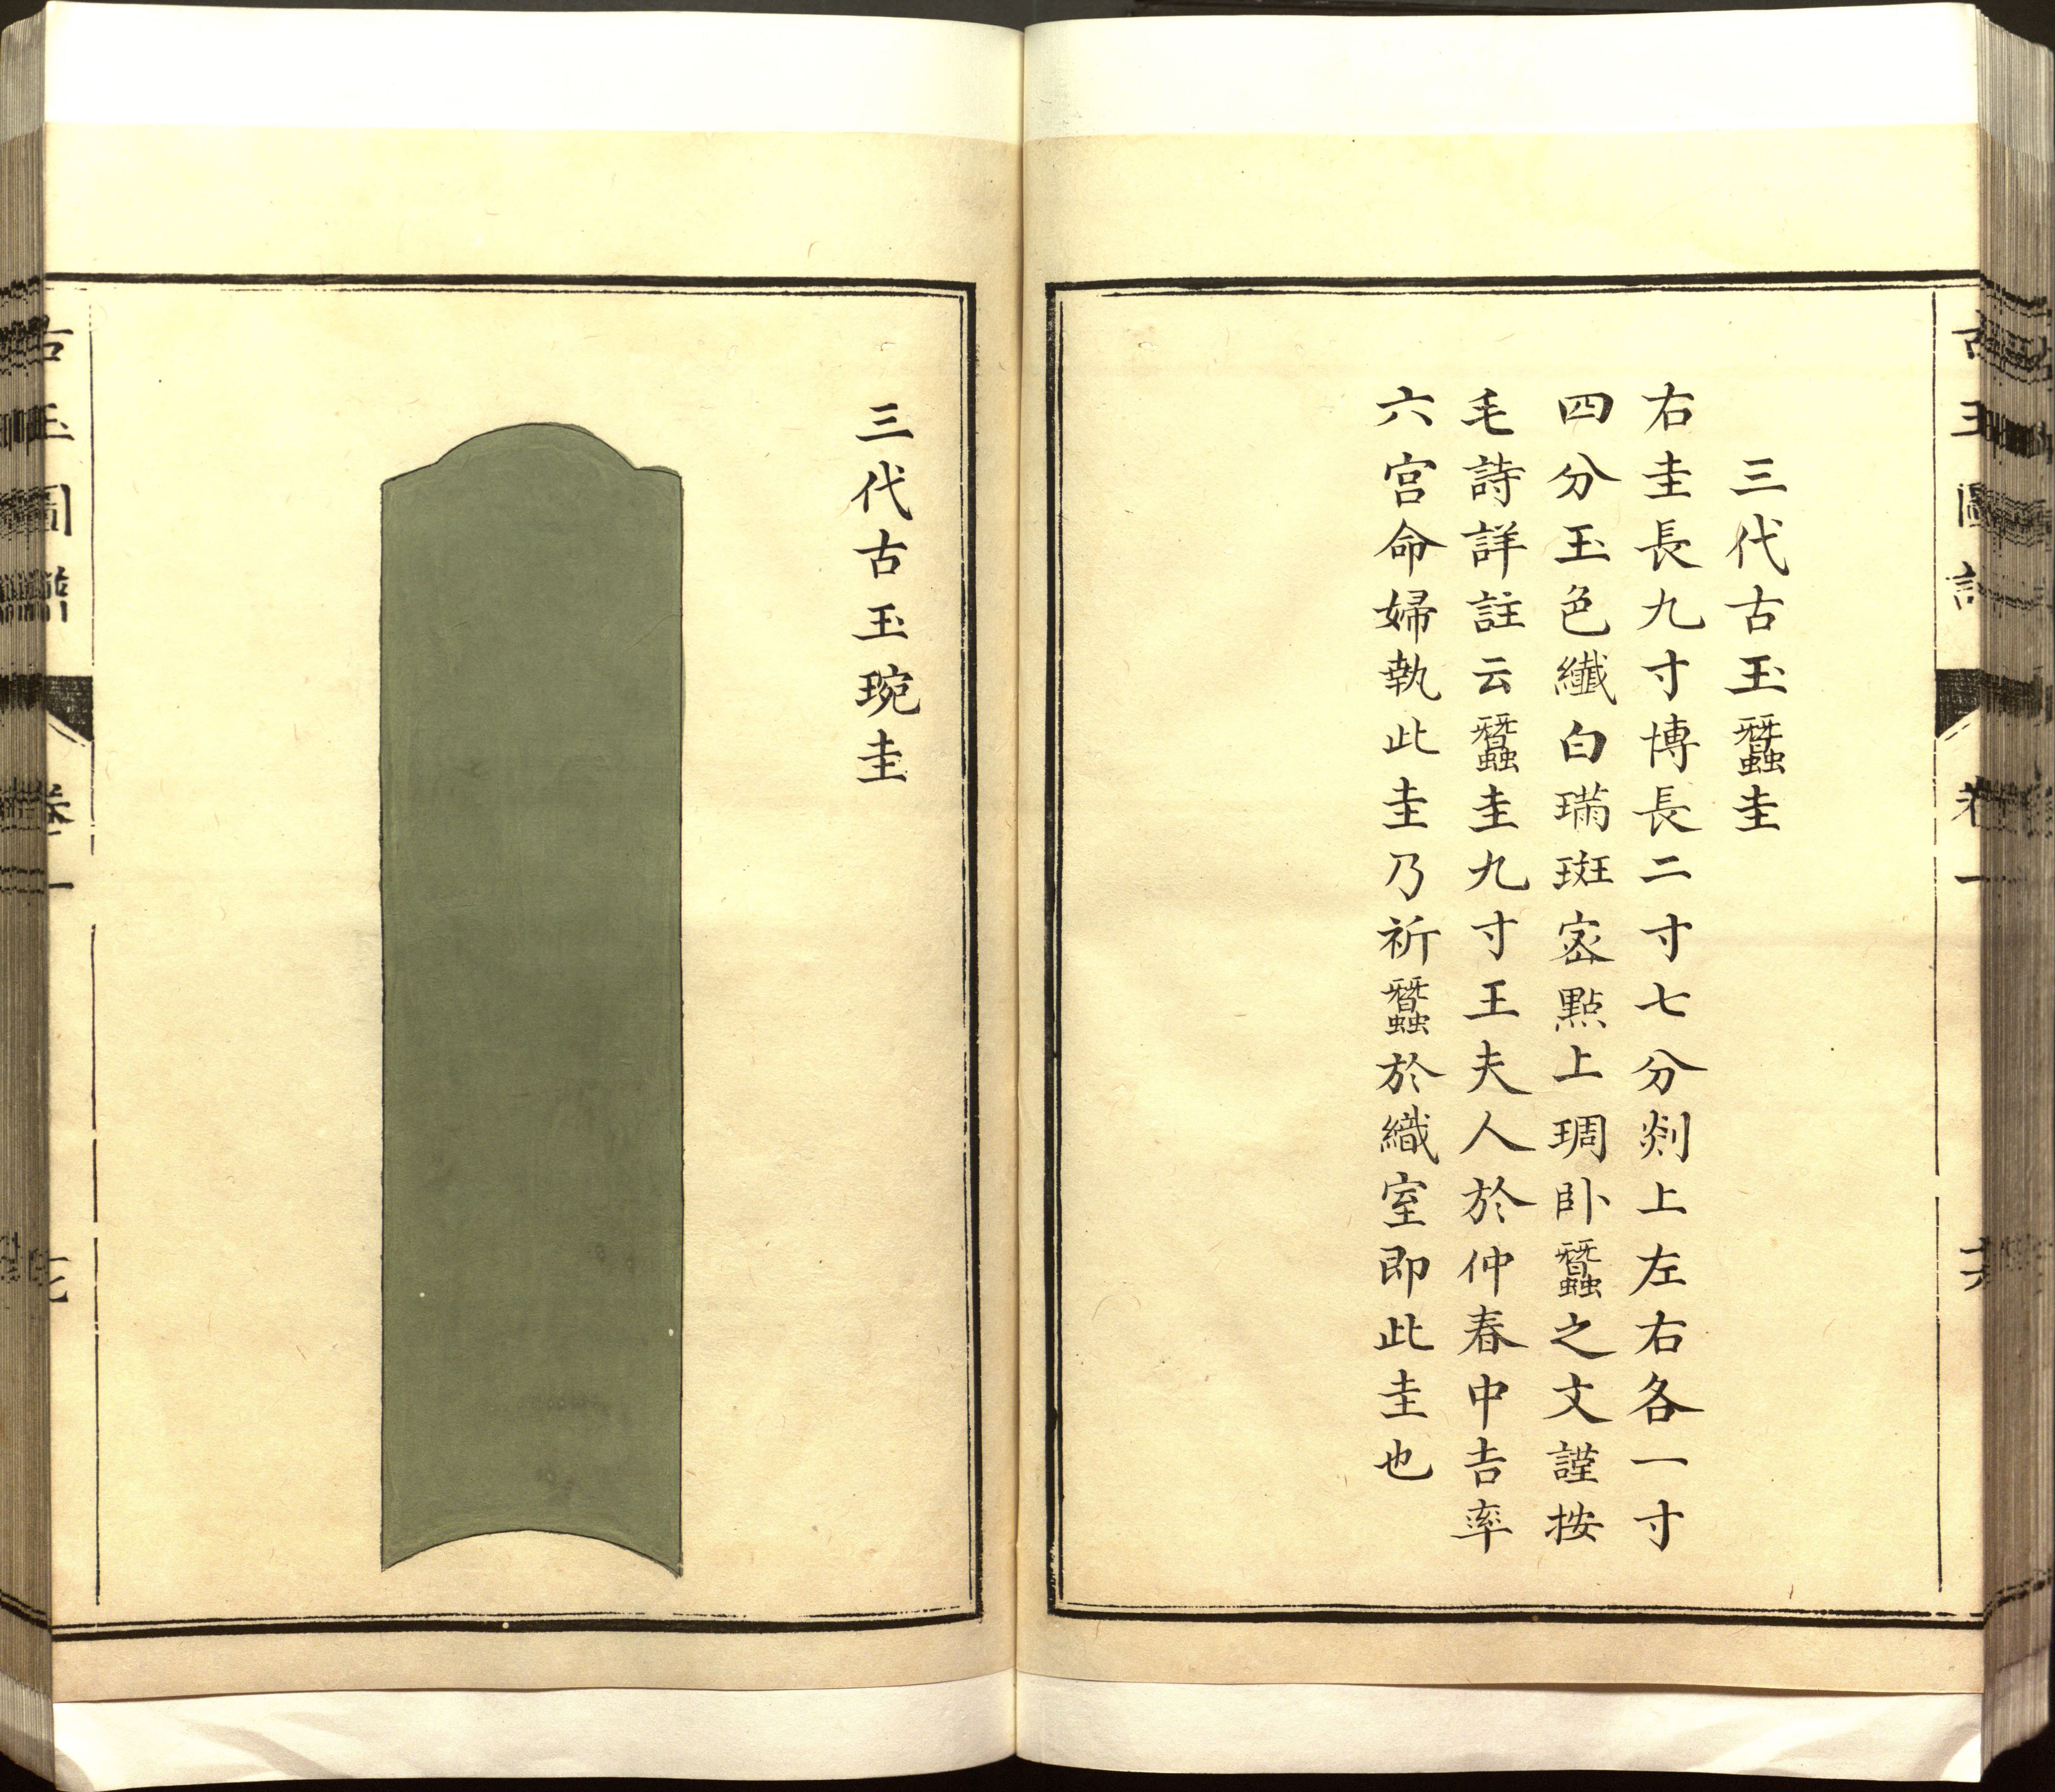 三代古玉蠶圭
右圭長九寸博長二寸七分剡上左右各一寸
四分玉色纖白璊斑宻點上琱卧蠶之文謹按
毛詩詳註云蠶圭九寸王夫人於仲春中吉率
六宮命婦執此圭乃祈蠶於織室即此圭也
三代古玉琬圭
古玉圖譜
卷一